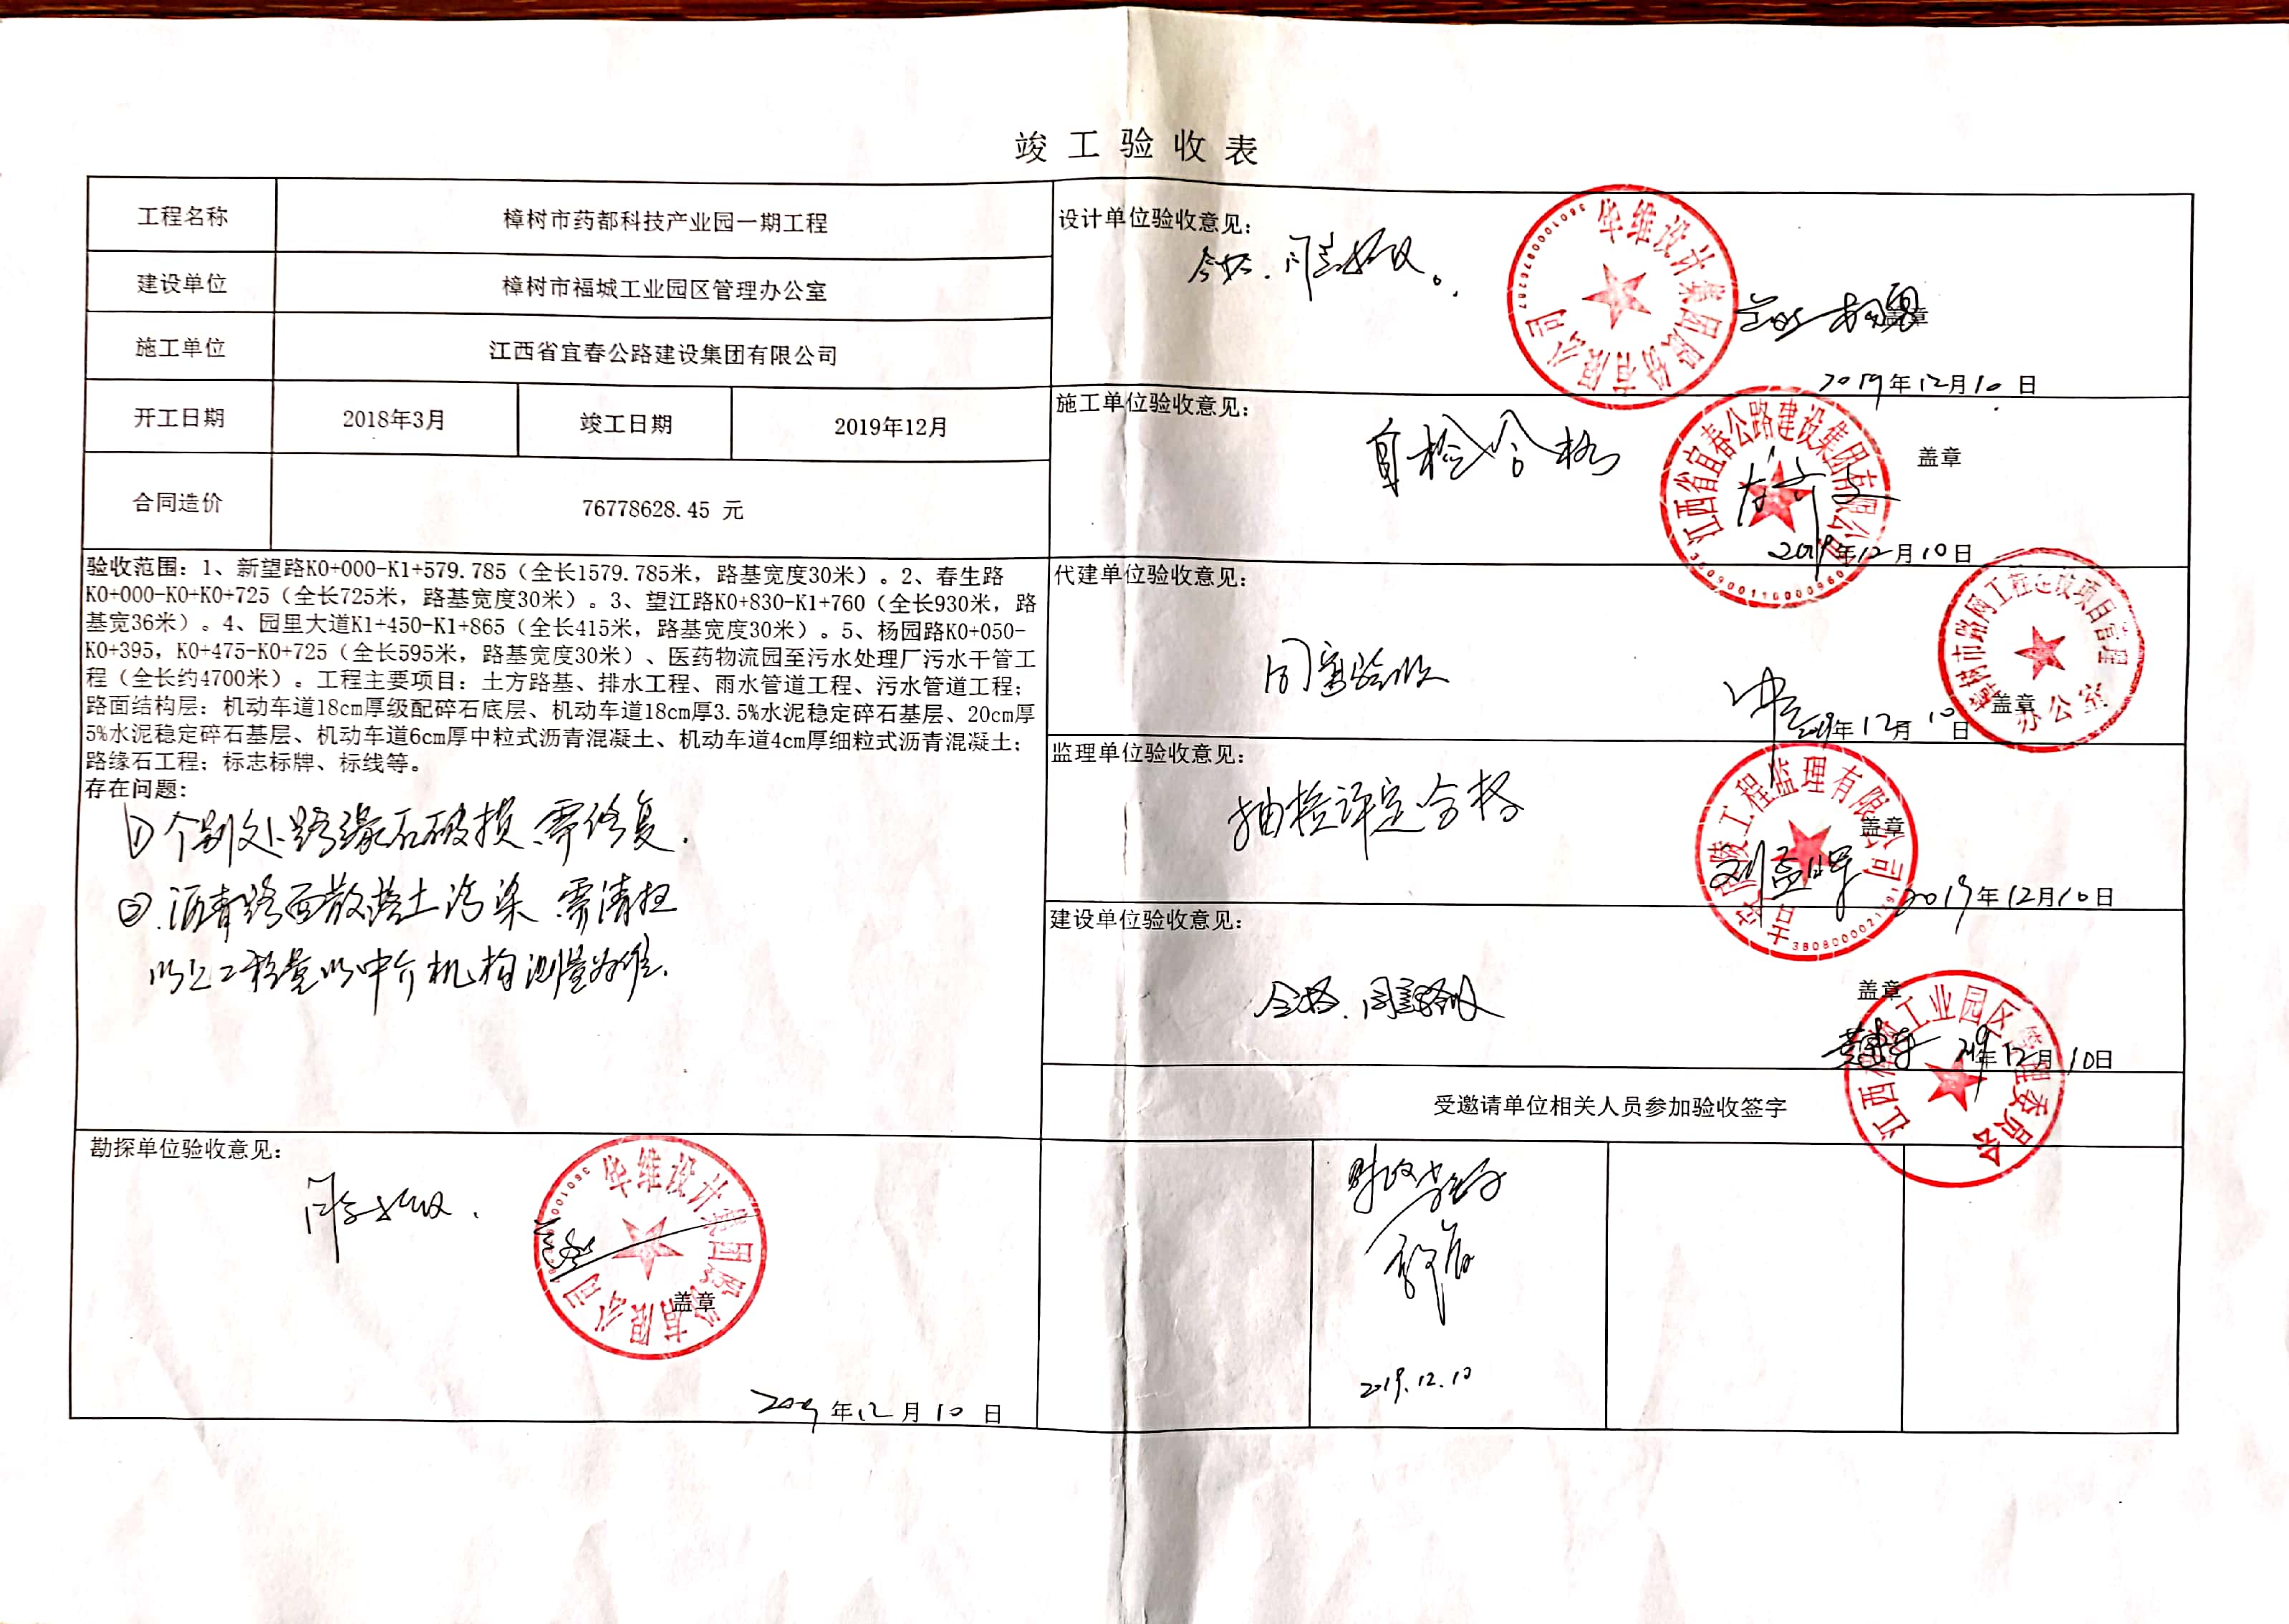 竣工验收表
工程名称
樟树市药都科技产业园一期工程
建设单位
樟树市福城工业园区管理办公室
施工单位
江西省宜春公路建设集团有限公司
开工日期
2018年3月
竣工日期
2019年12月
合同造价
76778628.45 元
验收范围：1、新望路K0+000-K1+579.785（全长1579.785米，路基宽度30米）。2、春生路
K0+000-K0+K0+725（全长725米，路基宽度30米）。3、望江路K0+830-K1+760（全长930米，路
基宽36米）。4、园里大道K1+450-K1+865（全长415米，路基宽度30米）。5、杨园路K0+050-
K0+395，K0+475-K0+725（全长595米，路基宽度30米）、医药物流园至污水处理厂污水干管工
程（全长约4700米）。工程主要项目：土方路基、排水工程、雨水管道工程、污水管道工程；
路面结构层：机动车道18cm厚级配碎石底层、机动车道18cm厚3.5%水泥稳定碎石基层、20cm厚
5%水泥稳定碎石基层、机动车道6cm厚中粒式沥青混凝土、机动车道4cm厚细粒式沥青混凝土；
路缘石工程；标志标牌、标线等。
存在问题：
① 个别处路缘石破损，需修复．
②．沥青路面散落土污染 需清扫
以上工程量以中介机构测量为准．
勘探单位验收意见：
同意验收．
华维设计集团股份有限公司
盖章
2019年12月10日
设计单位验收意见：
合格．同意验收。
华维设计集团股份有限公司
盖章
2019年12月10日
施工单位验收意见：
自检合格
江西省宜春公路建设集团有限公司
盖章
2019年12月10日
代建单位验收意见：
同意验收
樟树市路网工程建设项目管理
办公室
盖章
2019年12月10日
监理单位验收意见：
抽检评定合格
吉安庐陵工程监理有限公司
盖章
2019年12月10日
建设单位验收意见：
合格．同意验收
江西樟树工业园区管理委员会
盖章
2019年12月10日
受邀请单位相关人员参加验收签字
2019.12.10